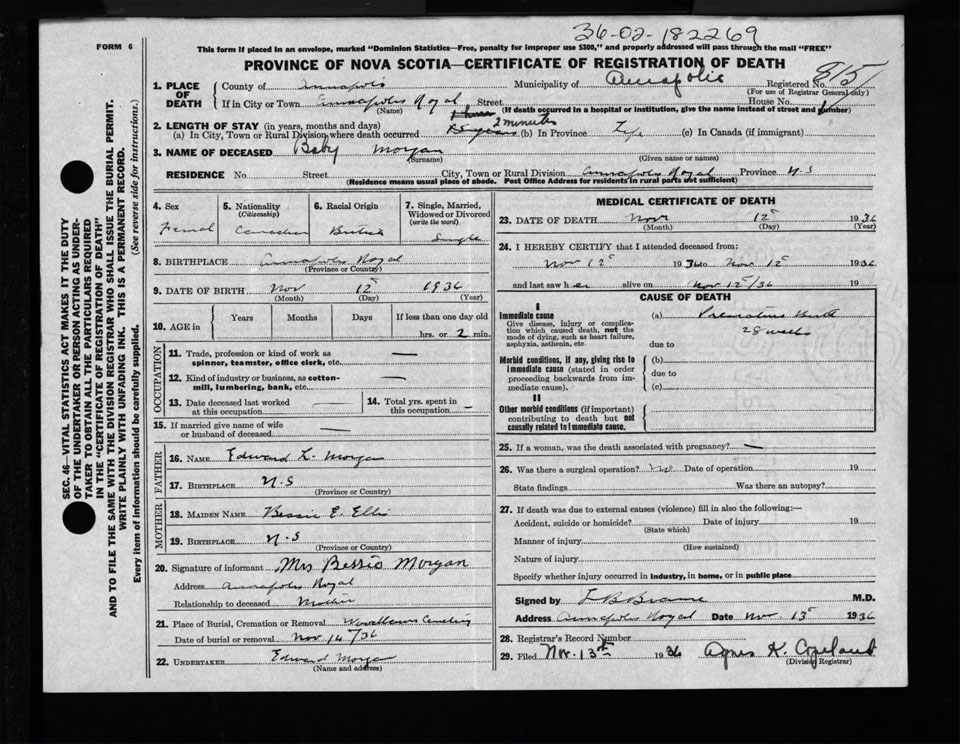 36-02-182269
FORM 6
This form if placed in an envelope, marked "Dominion Statistics—Free, penalty for improper use $300," and properly addressed will pass through the mail "FREE"
PROVINCE OF NOVA SCOTIA—CERTIFICATE OF REGISTRATION OF DEATH
815
1. PLACE OF DEATH
County of Annapolis Municipality of Annapolis Registered No.
(For use of Registrar General only)
If in City or Town Annapolis Royal Street House No.
(Name) (If death occurred in a hospital or institution, give the name instead of street and number)
2 minutes
2. LENGTH OF STAY (in years, months and days)
(a) In City, Town or Rural Division where death occurred (b) In Province Life (c) In Canada (if immigrant)
3. NAME OF DECEASED Baby Morgan
(Surname) (Given name or names)
RESIDENCE No. Street City, Town or Rural Division Annapolis Royal Province N.S
(Residence means usual place of abode. Post Office Address for residents in rural parts not sufficient)
4. Sex
Femal
5. Nationality
(Citizenship)
Canadian
6. Racial Origin
British
7. Single, Married, Widowed or Divorced
(write the word)
Single
8. BIRTHPLACE Annapolis Royal
(Province or Country)
9. DATE OF BIRTH Nov 12 1936
(Month) (Day) (Year)
10. AGE in
Years Months Days If less than one day old
hrs. or 2 min.
OCCUPATION
11. Trade, profession or kind of work as spinner, teamster, office clerk, etc. —
12. Kind of industry or business, as cotton-mill, lumbering, bank, etc. —
13. Date deceased last worked at this occupation —
14. Total yrs. spent in this occupation —
15. If married give name of wife or husband of deceased
FATHER
16. NAME Edward L. Morgan
17. BIRTHPLACE N.S
(Province or Country)
MOTHER
18. MAIDEN NAME Bessie E. Ellis
19. BIRTHPLACE N.S
(Province or Country)
20. Signature of informant Mrs Bessie Morgan
Address Annapolis Royal
Relationship to deceased Mother
21. Place of Burial, Cremation or Removal Cemetery
Date of burial or removal Nov 14/36
22. UNDERTAKER Edward Morgan
(Name and address)
MEDICAL CERTIFICATE OF DEATH
23. DATE OF DEATH Nov 12 1936
(Month) (Day) (Year)
24. I HEREBY CERTIFY that I attended deceased from:
Nov 12 1936 to Nov 12 1936
and last saw her alive on Nov 12/36 19
CAUSE OF DEATH
I
Immediate cause
Give disease, injury or complication which caused death, not the mode of dying, such as heart failure, asphyxia, asthenia, etc.
(a) Premature Birth
28 weeks
due to
Morbid conditions, if any, giving rise to immediate cause (stated in order proceeding backwards from immediate cause).
(b)
due to
(c)
II
Other morbid conditions (if important) contributing to death but not causally related to immediate cause.
25. If a woman, was the death associated with pregnancy? —
26. Was there a surgical operation? No Date of operation 19
State findings Was there an autopsy?
27. If death was due to external causes (violence) fill in also the following:—
Accident, suicide or homicide? Date of injury 19
(State which)
Manner of injury
(How sustained)
Nature of injury
Specify whether injury occurred in industry, in home, or in public place
Signed by M.D.
Address Annapolis Royal Date Nov. 13 1936
28. Registrar's Record Number
29. Filed Nov. 13th 1936 Agnes K. Copeland
(Division Registrar)
SEC. 46—VITAL STATISTICS ACT MAKES IT THE DUTY
OF THE UNDERTAKER OR PERSON ACTING AS UNDER-
TAKER TO OBTAIN ALL THE PARTICULARS REQUIRED
IN THE "CERTIFICATE OF REGISTRATION OF DEATH"
AND TO FILE THE SAME WITH THE DIVISION REGISTRAR WHO SHALL ISSUE THE BURIAL PERMIT.
WRITE PLAINLY WITH UNFADING INK. THIS IS A PERMANENT RECORD.
Every item of information should be carefully supplied. (See reverse side for instructions.)